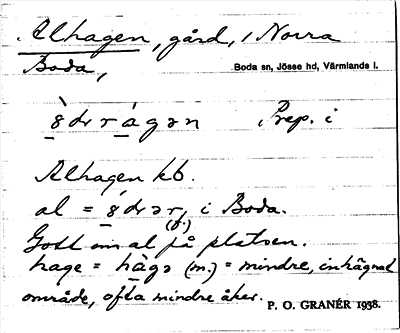 Alhagen, gård, i Norra
Boda,
Boda sn, Jösse hd, Värmlands l.
Prep. i
Alhagen kb.
al = i Boda.
(f.)
Gott om al på platsen.
hage = hàgə (m.) = mindre, inhägnat
område, ofta mindre åker.
P. O. GRANÉR 1938.